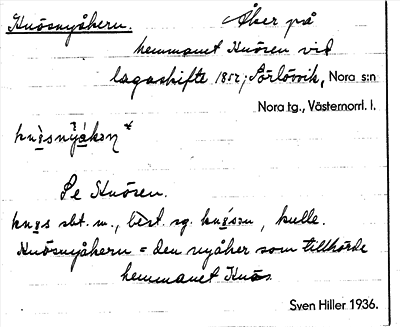 Knösnyåkern. Åker på
hemmanet Knösen vid
lagaskifte 1852; Sörlövvik, Nora s:n
Nora tg., Västernorrl. l.
Se Knösen.
sbt. m., best. sg. kulle.
Knösnyåkern = den nyåker som tillhörde
hemmanet Knös
Sven Hiller 1936.